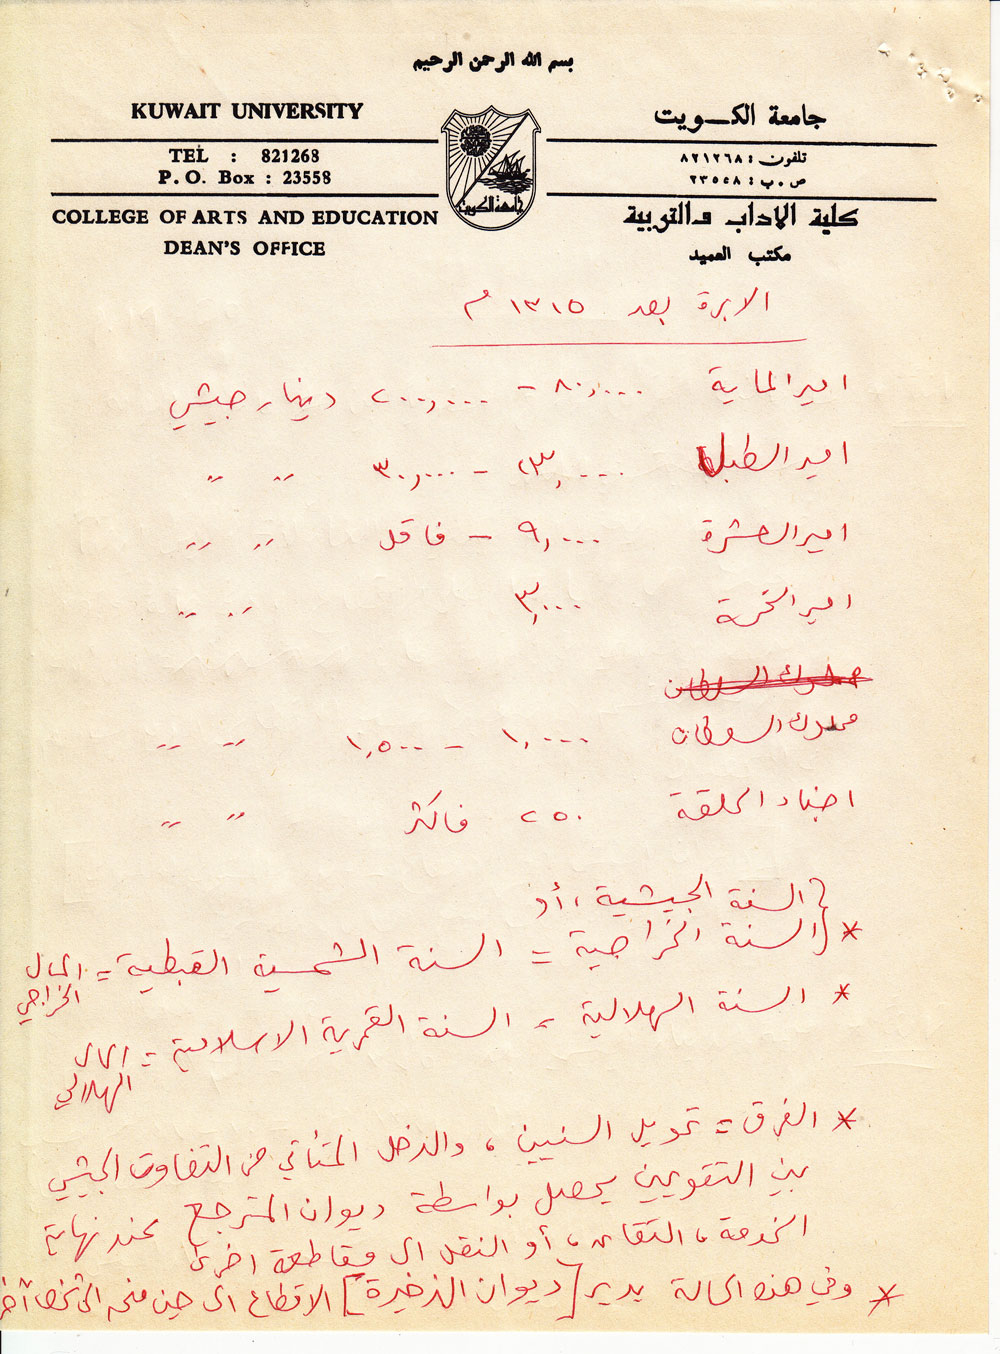 بسم الله الرحمن الرحيم
KUWAIT UNIVERSITY
جامعة الكـــويت
TEL : 821268
تلفون : ٨٢١٢٦٨
P. O. Box : 23558
ص . ب : ٢٣٥٥٨
COLLEGE OF ARTS AND EDUCATION
كلية الاداب والتربية
DEAN'S OFFICE
مكتب العميد
جامعة الكويت
بعد ١٣١٥ م
امير الماية ٨٠,٠٠٠ - ٢٠٠,٠٠٠ دينار جيشي
امير الطبل ٢٣,٠٠٠ - ٣٠,٠٠٠ ״ ״
امير العشرة ٩,٠٠٠ - فاقل ״ ״
امير الخمسة ٣,٠٠٠ ״ ״
مملوك السلطان
مملوك السلطان ١,٠٠٠ - ١,٥٠٠ ״ ״
اجناد الحلقة ٢٥٠ فاكثر ״ ״
السنة الجيشية، أو
* السنة الخراجية = السنة الشمسية القبطية = المال الخراجي
* السنة الهلالية = السنة القمرية الاسلامية = المال الهلالي
* الفرق = تحويل السنين، والدخل المتأتي من التفاوت الجيشي
بين التقويمين يحصل بواسطة ديوان المترجع عند نهاية
الخدمة، أو النقل الى مقاطعة اخرى
* وفي هذه الحالة يدير [ديوان الذخيرة] الاقطاع الى حين منحه الى شخص آخر